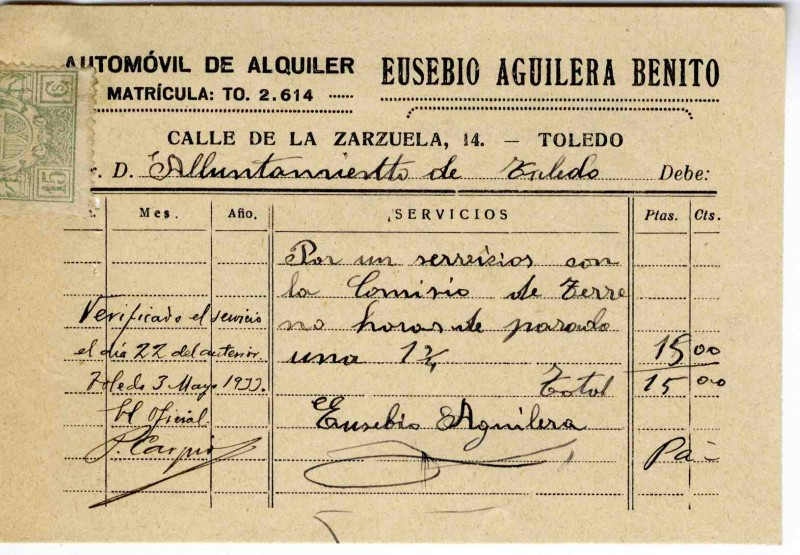 AUTOMÓVIL DE ALQUILER
MATRÍCULA: TO. 2.614
EUSEBIO AGUILERA BENITO
CALLE DE LA ZARZUELA, 14. — TOLEDO
15
r. D. Alluntamientto de Toledo Debe:
Mes. Año. SERVICIOS Ptas. Cts.
Por un serreicios con
la Comisio de Terre
no horas de parada
una 1 15 00
Total 15 00
Eusebio Aguilera
Pa
Verificado el servicio
el día 22 del anterior.
Toledo 3 Mayo 1933.
El Oficial.
P. Carpio